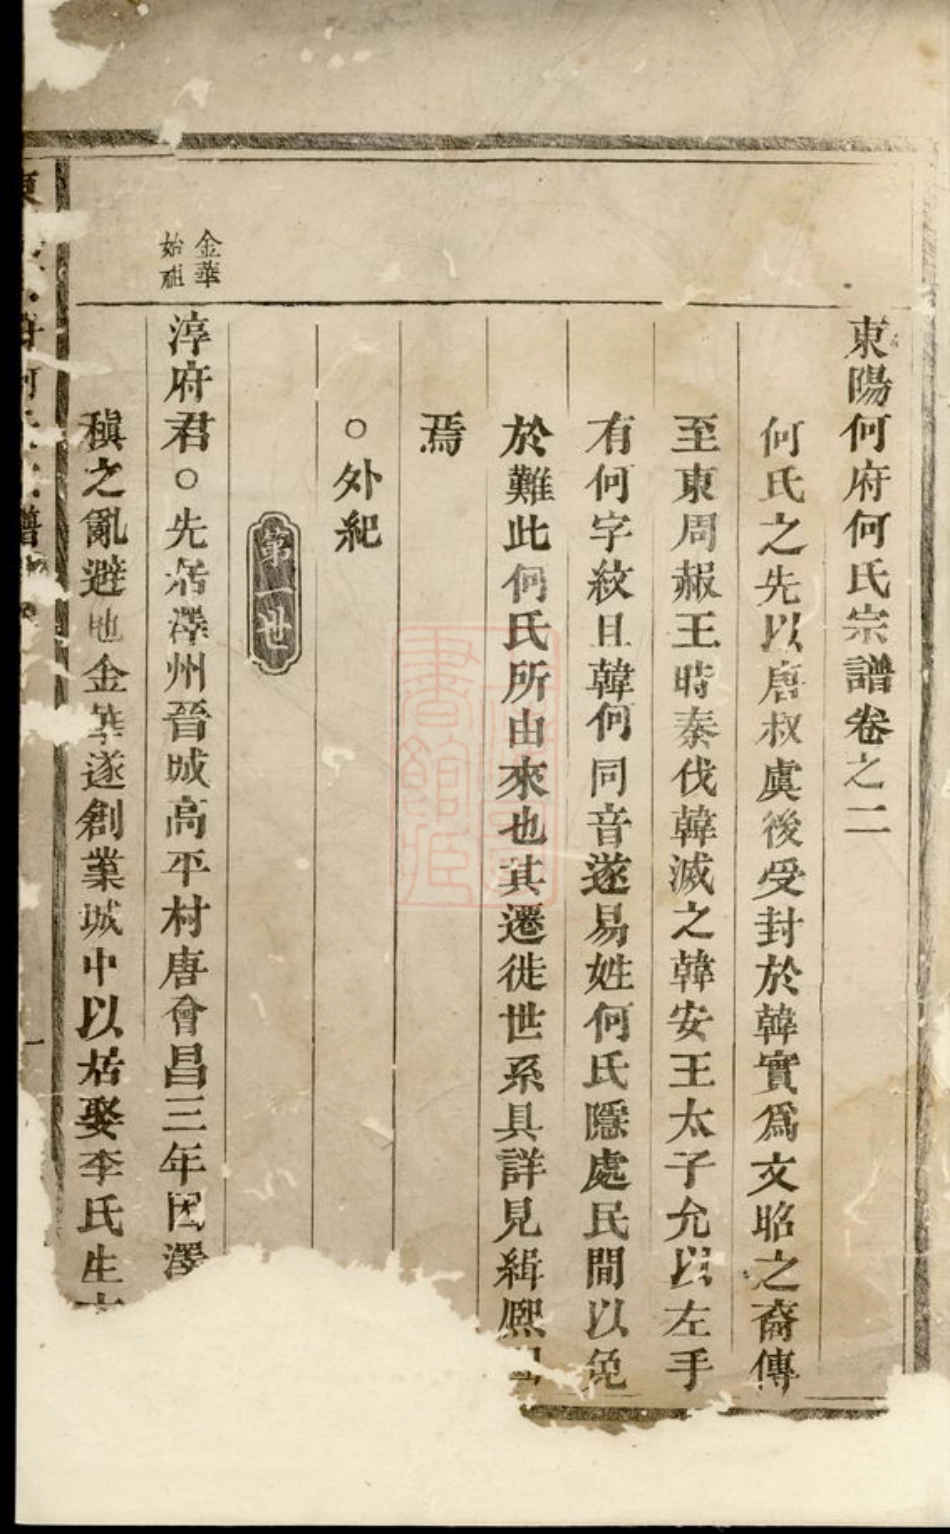 東陽何府何氏宗譜卷之二
何氏之先以唐叔虞後受封於韓實爲文昭之裔傳
至東周赧王時秦伐韓滅之韓安王太子允以左手
有何字紋且韓何同音遂易姓何氏隱處民間以免
於難此何氏所由來也其遷徙世系具詳見緝熙
焉
○外紀
第一世
金華
始祖
淳府君○先居澤州晉城高平村唐會昌三年因澤
稹之亂避地金華遂創業城中以居娶李氏生